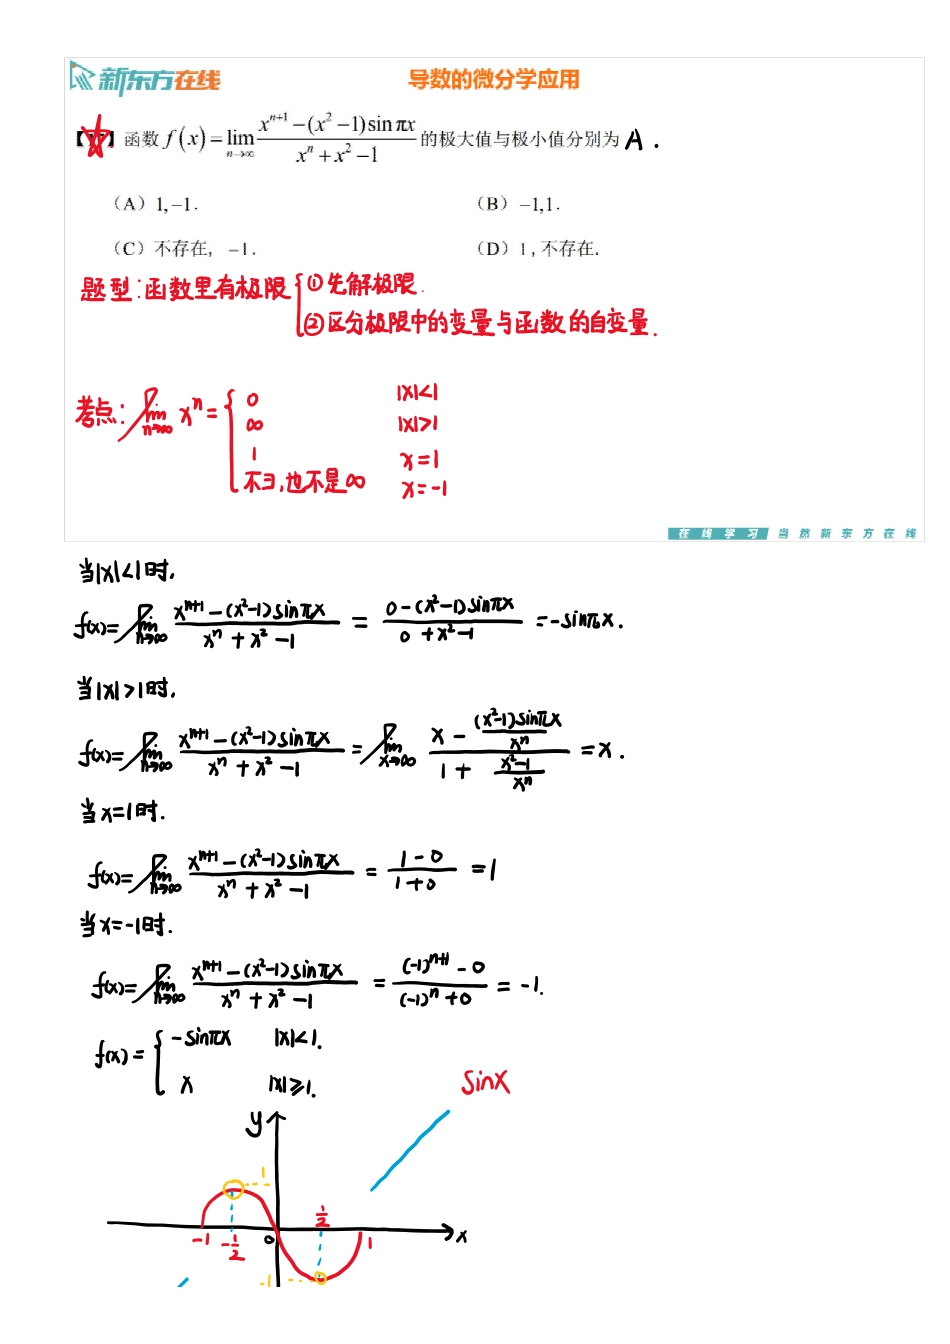 新东方在线 导数的微分学应用
【】函数 f(x)=lim n→∞ (x^{n+1}−(x²−1)sin πx)/(x^n+x²−1) 的极大值与极小值分别为 A .
(A) 1, −1. (B) −1,1.
(C) 不存在, −1. (D) 1, 不存在.
题型:函数里有极限 { ①先解极限.
②区分极限中的变量与函数的自变量.
考点: lim n→∞ x^n = { 0 |x|<1
∞ |x|>1
1 x=1
不∃,也不是∞ x=-1
在线学习 当然新东方在线
当|x|<1时,
f(x)= lim n→∞ (x^{n+1}-(x²-1)sinπx)/(x^n+x²-1) = (0-(x²-1)sinπx)/(0+x²-1) = -sinπx.
当|x|>1时,
f(x)= lim n→∞ (x^{n+1}-(x²-1)sinπx)/(x^n+x²-1) = lim x→∞ (x - (x²-1)sinπx/x^n)/(1 + (x²-1)/x^n) = x.
当x=1时.
f(x)= lim n→∞ (x^{n+1}-(x²-1)sinπx)/(x^n+x²-1) = (1-0)/(1+0) = 1
当x=-1时.
f(x)= lim n→∞ (x^{n+1}-(x²-1)sinπx)/(x^n+x²-1) = ((-1)^{n+1}-0)/((-1)^n+0) = -1.
f(x) = { -sinπx |x|<1.
x |x|≥1.
sinx
y
1
1/2
-1 -1/2 0 1 x
-1